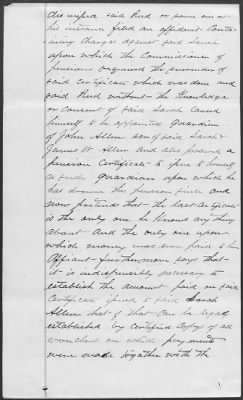 dissatisfied said Reid or some one at
his instance filed an affidavit Conta-
ining Charges against said Sarah
upon which the Commissioner of
pensions suspended the pension of
said Certificate which was done and
said Reid without the Knowledge
or Consent of said Sarah Caused
himself to be appointed Guardian
of John Allen son of said Sarah &
James W Allen and also procured a
pension Certificate to issue to himself
as such Guardian upon which he
has drawn the pension since and
now pretends that the last Certificate
is the only one he Knows any thing
about and the only one upon
which money was ever paid to him
Affiant furthermore says that
it is indispensibly necessary to
establish the amount paid on said
Certificate issued to said Sarah
Allen but that Can be legally
established by Certified Copy of all
vouchers on which payments
were made together with the